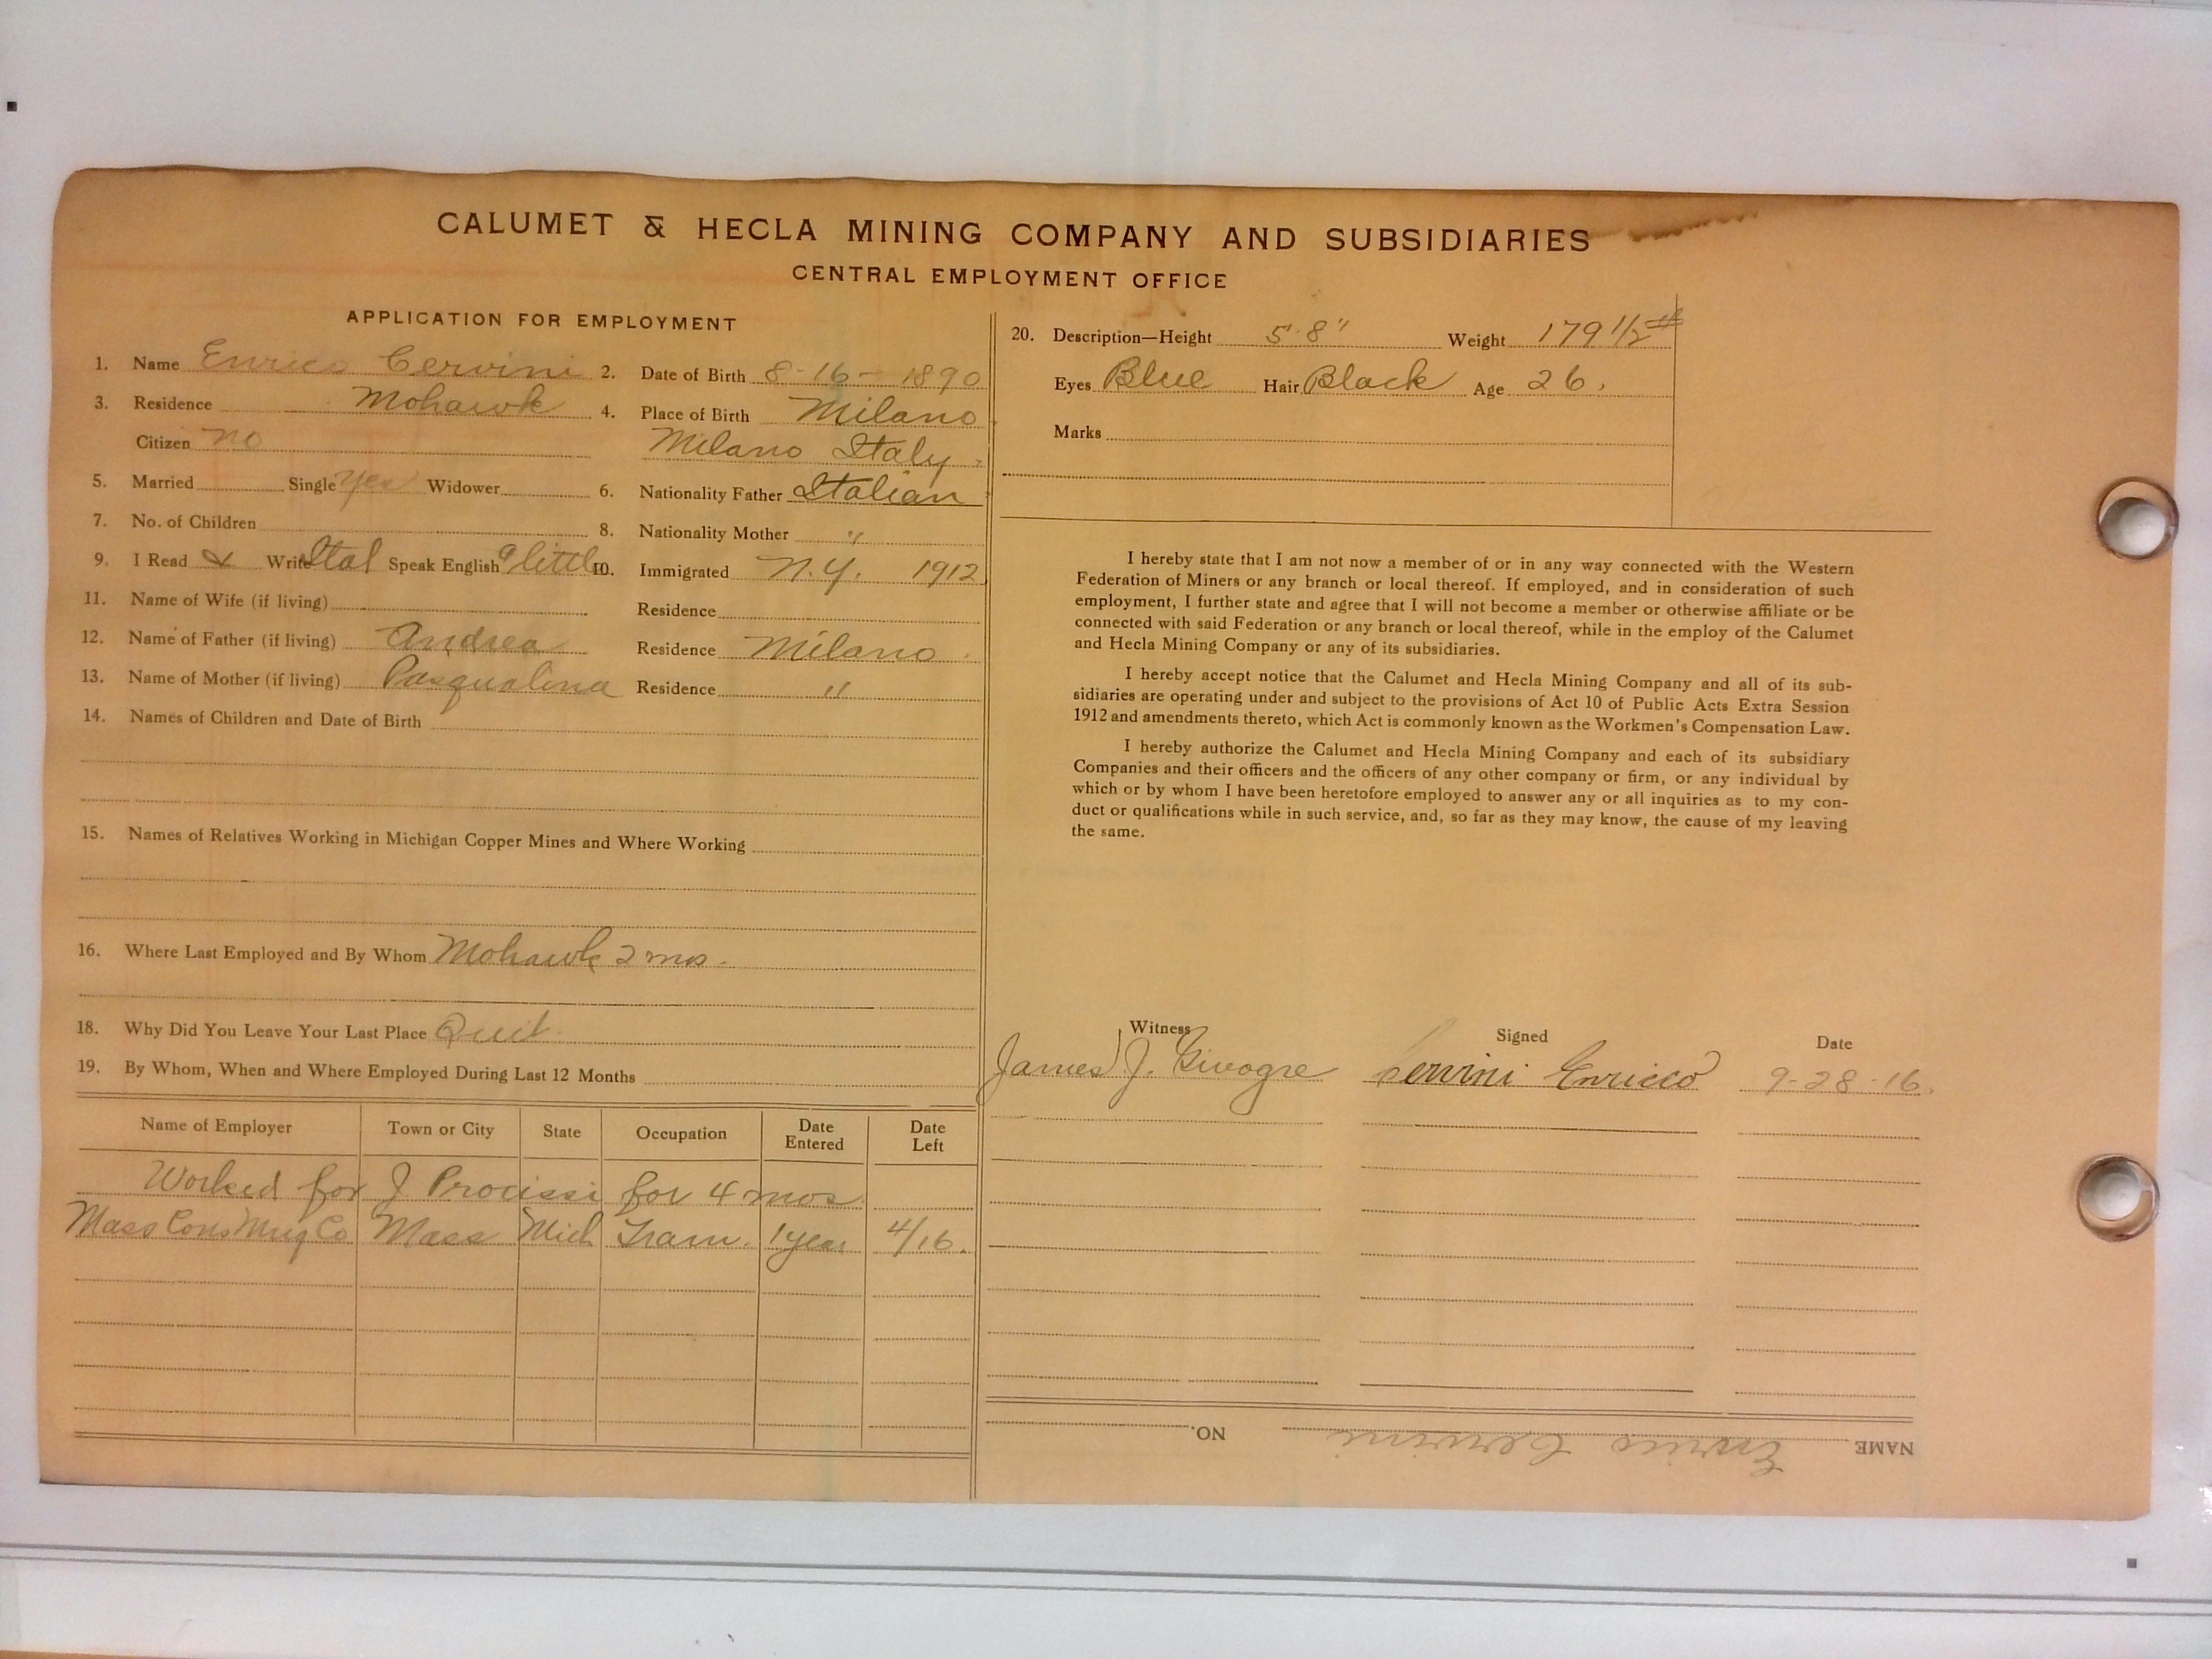 CALUMET & HECLA MINING COMPANY AND SUBSIDIARIES
CENTRAL EMPLOYMENT OFFICE
APPLICATION FOR EMPLOYMENT
1. Name Enrico Cervini 2. Date of Birth 8-16-1890
3. Residence Mohawk 4. Place of Birth Milano
Citizen no Milano Italy
5. Married Single Yes Widower 6. Nationality Father Italian
7. No. of Children 8. Nationality Mother "
9. I Read & Write Ital Speak English a little 10. Immigrated N.Y. 1912
11. Name of Wife (if living) Residence
12. Name of Father (if living) Andrea Residence Milano
13. Name of Mother (if living) Pasqualina Residence "
14. Names of Children and Date of Birth
15. Names of Relatives Working in Michigan Copper Mines and Where Working
16. Where Last Employed and By Whom Mohawk 2 mos.
18. Why Did You Leave Your Last Place Quit
19. By Whom, When and Where Employed During Last 12 Months
Name of Employer Town or City State Occupation Date Entered Date Left
Worked for J Procissi for 4 mos
Mass Cons Mng Co Mass Mich Tram. 1 year 4/16.
20. Description—Height 5' 8" Weight 179 1/2 #
Eyes Blue Hair Black Age 26.
Marks
I hereby state that I am not now a member of or in any way connected with the Western
Federation of Miners or any branch or local thereof. If employed, and in consideration of such
employment, I further state and agree that I will not become a member or otherwise affiliate or be
connected with said Federation or any branch or local thereof, while in the employ of the Calumet
and Hecla Mining Company or any of its subsidiaries.
I hereby accept notice that the Calumet and Hecla Mining Company and all of its sub-
sidiaries are operating under and subject to the provisions of Act 10 of Public Acts Extra Session
1912 and amendments thereto, which Act is commonly known as the Workmen's Compensation Law.
I hereby authorize the Calumet and Hecla Mining Company and each of its subsidiary
Companies and their officers and the officers of any other company or firm, or any individual by
which or by whom I have been heretofore employed to answer any or all inquiries as to my con-
duct or qualifications while in such service, and, so far as they may know, the cause of my leaving
the same.
Witness Signed Date
James J. Givogre Cervini Enricco 9-28-16.
NAME Enrico Cervini NO.